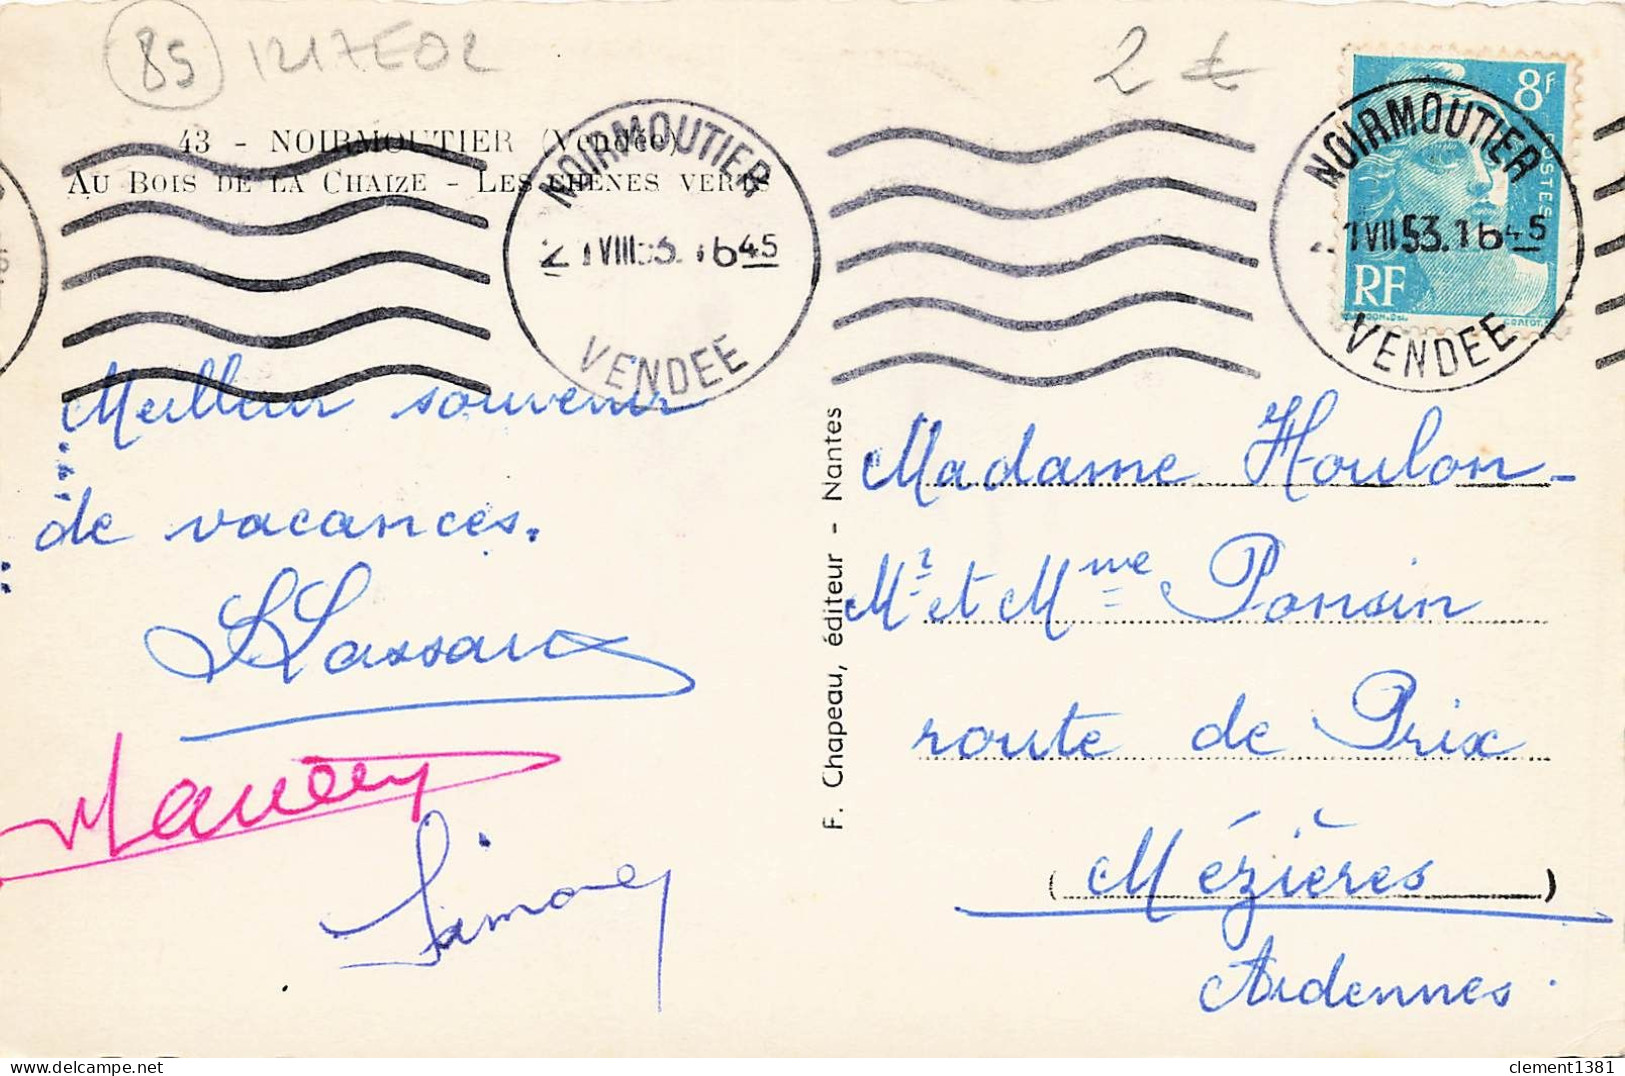 85
1217E02
2 €
43 - NOIRMOUTIER (Vendée)
AU BOIS DE LA CHAIZE - LES CHENES VERTS
NOIRMOUTIER
1 VIII 53. 16 45
VENDEE
8F
POSTES
RF
NOIRMOUTIER
1 VIII 53. 16 45
VENDEE
Meilleur souvenir
de vacances.
Simone
F. Chapeau, éditeur - Nantes
Madame Houlon-
Mr et Mme Ponsin
route de Prix
(Mézières)
Ardennes.
clement1381